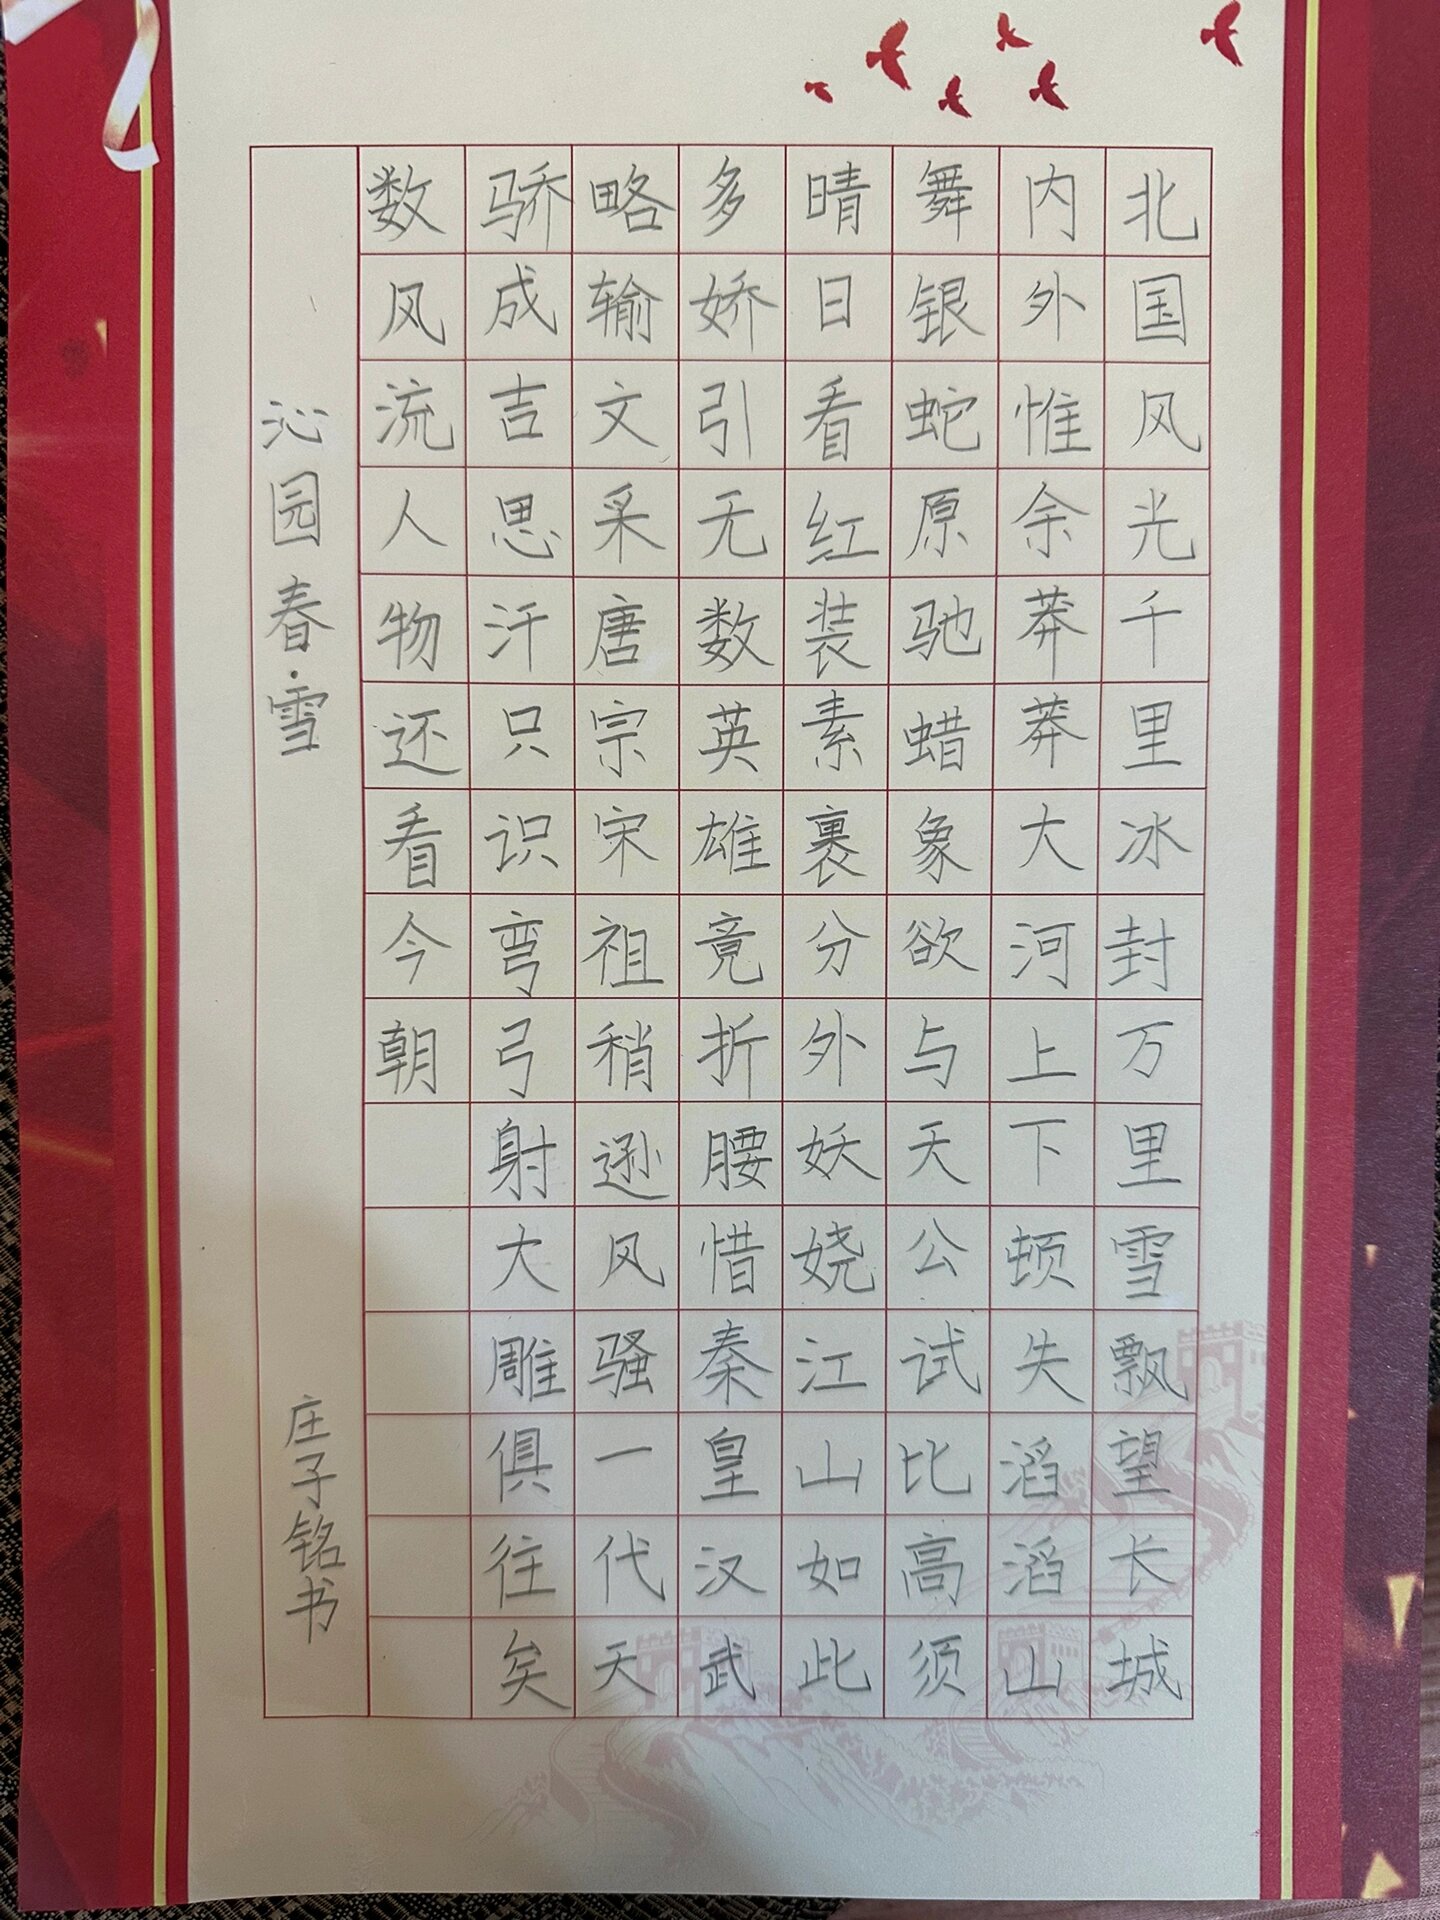 北国风光千里冰封万里雪飘望长城
内外惟余莽莽大河上下顿失滔滔山
舞银蛇原驰蜡象欲与天公试比高须
晴日看红装素裹分外妖娆江山如此
多娇引无数英雄竟折腰惜秦皇汉武
略输文采唐宗宋祖稍逊风骚一代天
骄成吉思汗只识弯弓射大雕俱往矣
数风流人物还看今朝
沁园春·雪
庄子铭书